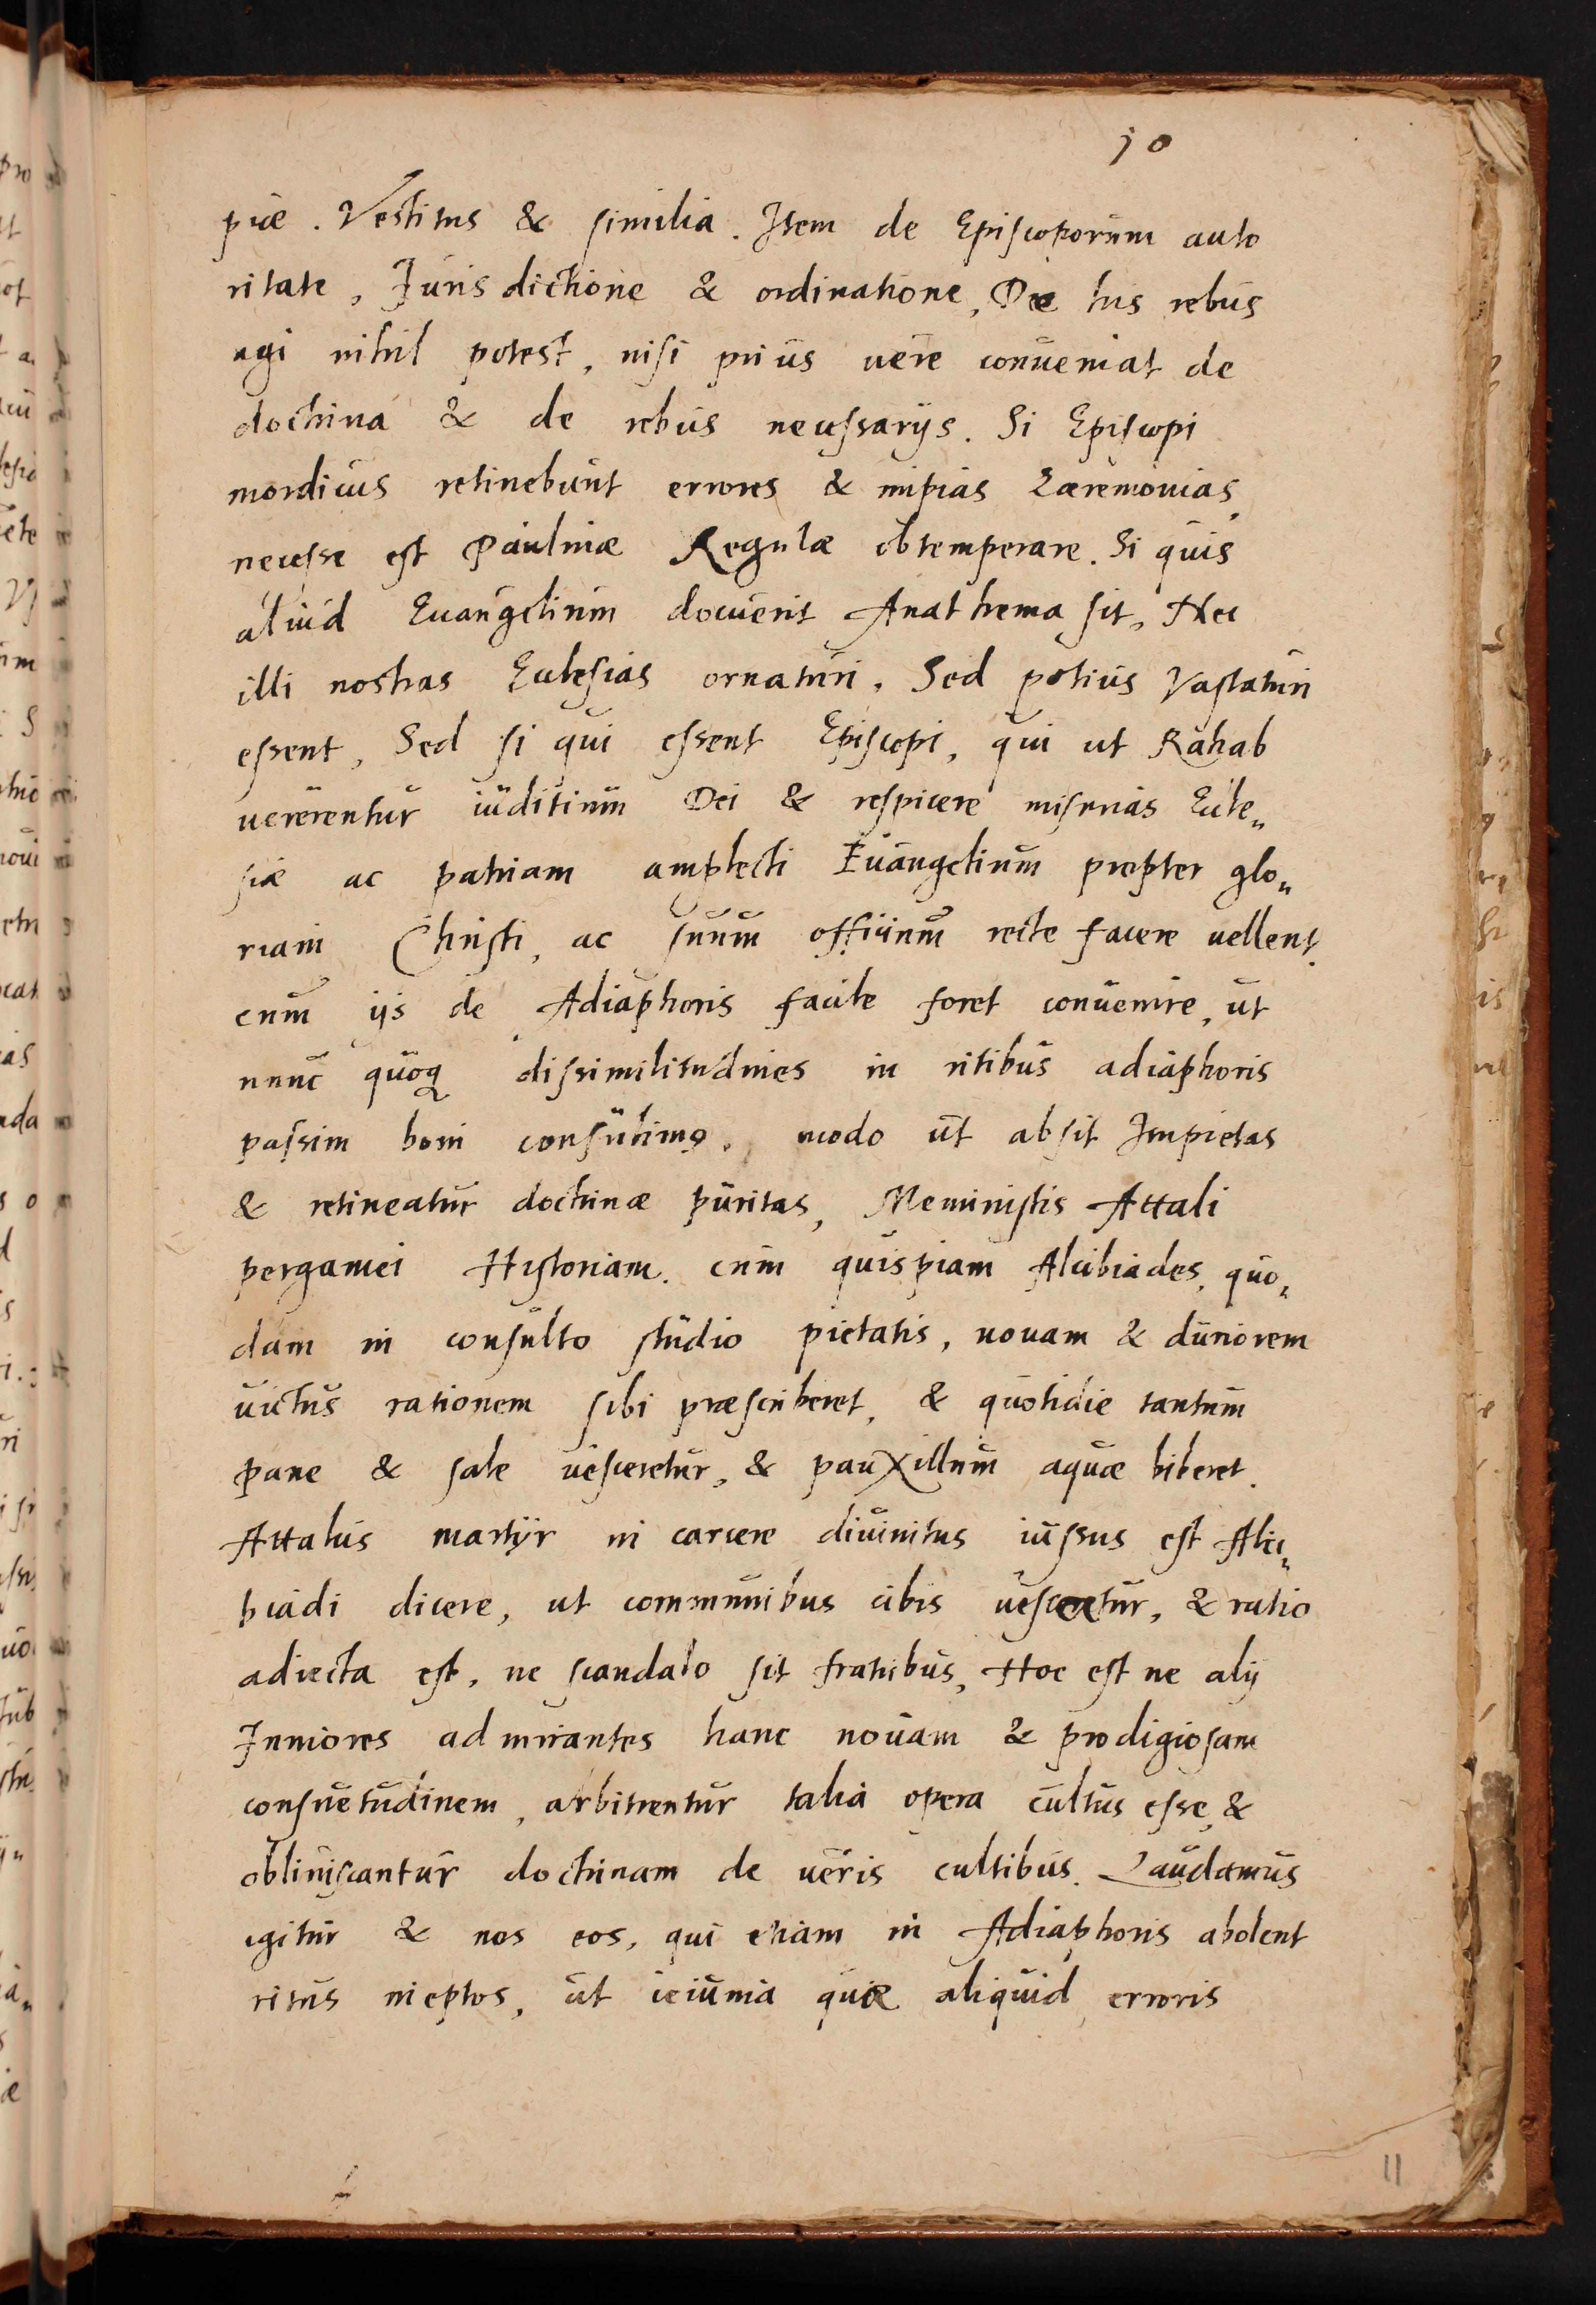 10
piæ. Vestitus & similia. Item de Episcoporum auto
ritate, Jurisdictione & ordinatione, De his rebus
agi nihil potest, nisi prius uere conueniat de
doctrina & de rebus necessarijs. Si Episcopi
mordicus retinebunt errores & impias Cæremonias,
necesse est Paulinæ Regulæ obtemperare. Si quis
aliud Euangelium docuerit Anathema sit, Nec
illi nostras Ecclesias ornaturi. Sed potius Vastaturi
essent, Sed si qui essent Episcopi, qui ut Rahab
uererentur iuditium Dei & respicere miserias Eccle„
siæ ac patriam amplecti Euangelium propter glo„
riam Christi, ac suum officium recte facere uellent,
cum ijs de Adiaphoris facile foret conuenire, ut
nunc quoq dissimilitudines in ritibus adiaphoris
passim boni consulimꝰ. modo ut absit Impietas
& retineatur doctrinæ puritas, Meministis Attali
pergamei Historiam. cum quispiam Alcibiades, quo„
dam in consulto studio pietatis, nouam & duriorem
uictus rationem sibi præscriberet, & quotidie tantum
pane & sale uesceretur, & pauxillum aquæ biberet.
Attalus martijr in carcere diuinitus iussus est Alci„
biadi dicere, ut communibus cibis uesceretur, & ratio
adiecta est, ne scandalo sit fratribus, Hoc est ne alij
Juniores admirantes hanc nouam & prodigiosam
consuetudinem, arbitrentur talia opera cultus esse, &
obliuiscantur doctrinam de ueris cultibus. Laudamus
igitur & nos eos, qui etiam in Adiaphoris abolent
ritus ineptos, ut ieiunia quæ aliquid erroris
11